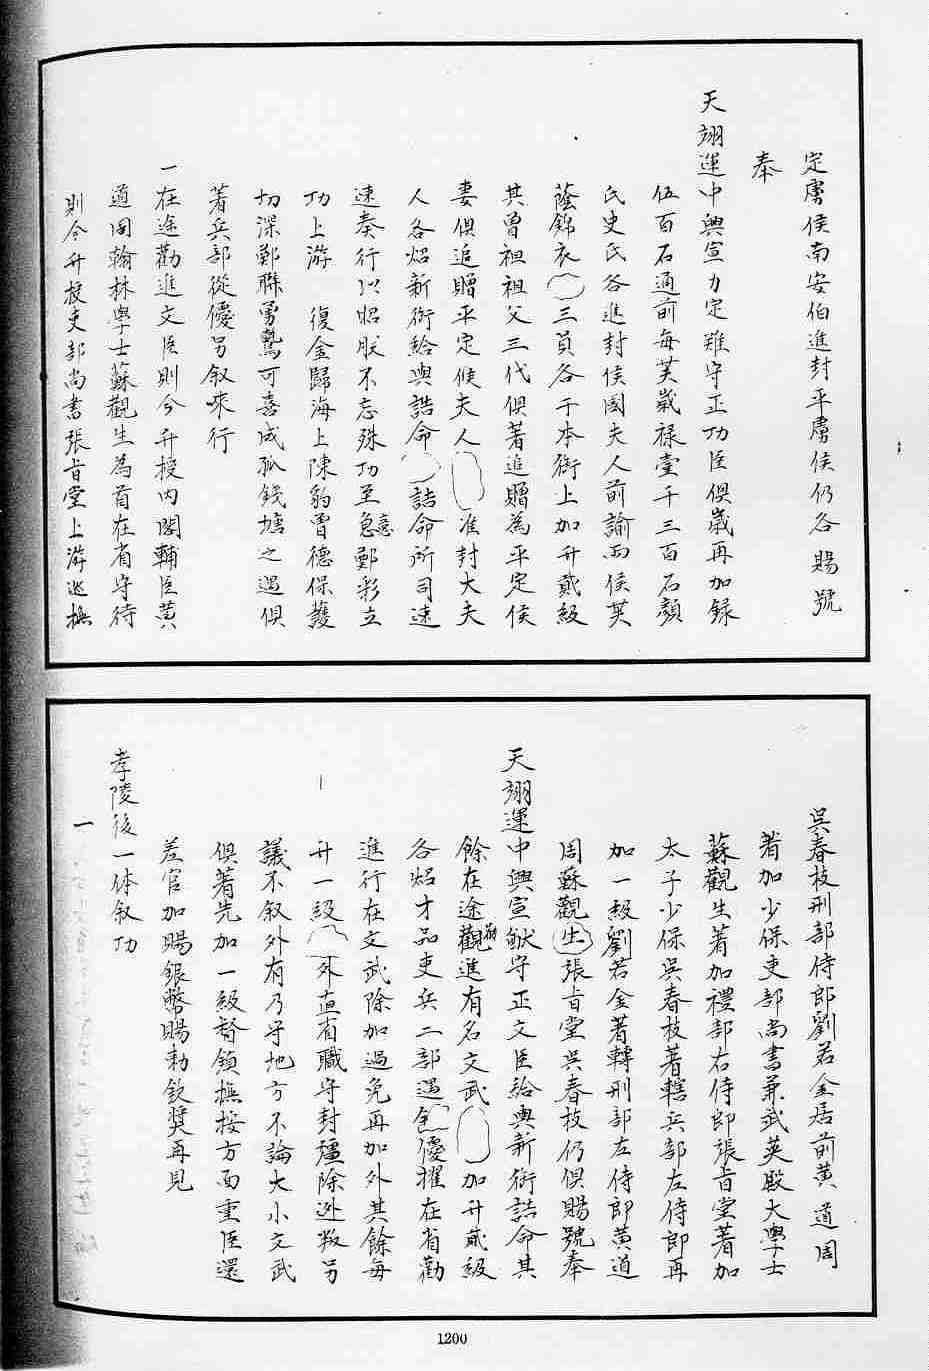 定虜侯南安伯進封平虜侯仍各賜號
奉
天翊運中興宣力定難守正功臣俱歲再加錄
伍百石通前每芙歲祿壹千三百石顏
氏史氏各進封侯國夫人前諭兩侯芙
蔭錦衣三員各于本衛上加升貳級
其曾祖祖父三代俱著追贈為平定侯
妻俱追贈平定候夫人准封大夫
人各炤新銜給與誥命誥命所司速
速奏行以昭朕不忘殊功至意鄭彩立
功上游復金歸海上陳豹曾德保護
切深鄭聯勇鷙可喜成孤錢塘之遇俱
著兵部從優另叙咪行
一在途勸進文臣則今升授內閣輔臣黃
道周翰林學士蘇觀生為首在省守待
則今升授吏部尚書張肯堂上游巡撫
吳春枝刑部侍郎劉若金居前黃道周
著加少保吏部尚書兼武英殿大學士
蘇觀生著加禮部右侍郎張肯堂著加
太子少保吳春枝著轄兵部左侍郎再
加一級劉若金著轉刑部左侍郎黃道
周蘇觀生張肯堂吳春枝仍俱賜號奉
天翊運中興宣猷守正文臣給與新銜誥命其
餘在途觀進有名文武加升貳級
各炤才品吏兵二部遇優擢在省勸
進行在文武除加過免再加外其餘每
升一級外直有職守封疆除逊叛另
議不叙外有乃守地方不論大小文武
俱著先加一級督鎮撫按方面重臣還
差官加賜銀幣賜勅欽奨再見
孝陵後一体叙功
一
1200